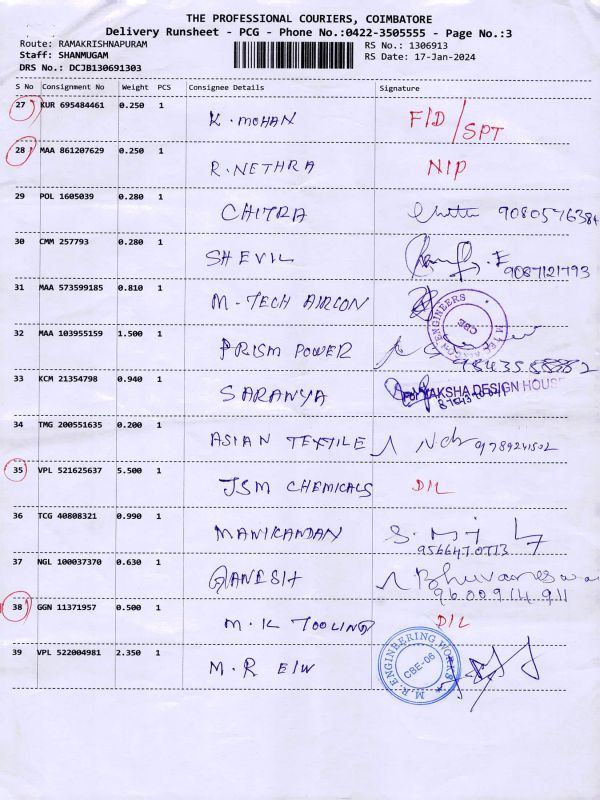 THE PROFESSIONAL COURIERS, COIMBATORE
Delivery Runsheet - PCG - Phone No.:0422-3505555 - Page No.:3
Route: RAMAKRISHNAPURAM RS No.: 1306913
Staff: SHANMUGAM RS Date: 17-Jan-2024
DRS No.: DCJB130691303
S No Consignment No Weight PCS Consignee Details Signature
27 KUR 695484461 0.250 1 K. MOHAN F/D / SPT
28 MAA 861207629 0.250 1 R. NETHRA NIP
29 POL 1605039 0.280 1 CHITRA 9080576384
30 CMM 257793 0.280 1 SHEVIL
9087121793
31 MAA 573599185 0.810 1 M-TECH AIRCON
32 MAA 103955159 1.500 1 PRISM POWER
33 KCM 21354798 0.940 1 SARANYA For YAKSHA DESIGN HOUSE
34 TMG 200551635 0.200 1 ASIAN TEXTILE 9789241502
35 VPL 521625637 5.500 1 JSM CHEMICALS D/L
36 TCG 40808321 0.990 1 MANIKANDAN
37 NGL 100037370 0.630 1 GANESH Bhuvaneswa
9600914911
38 GGN 11371957 0.500 1 M.K TOOLING D/L
39 VPL 522004981 2.350 1 M.R E/W
M.R. ENGINEERING WORKS
CBE-06